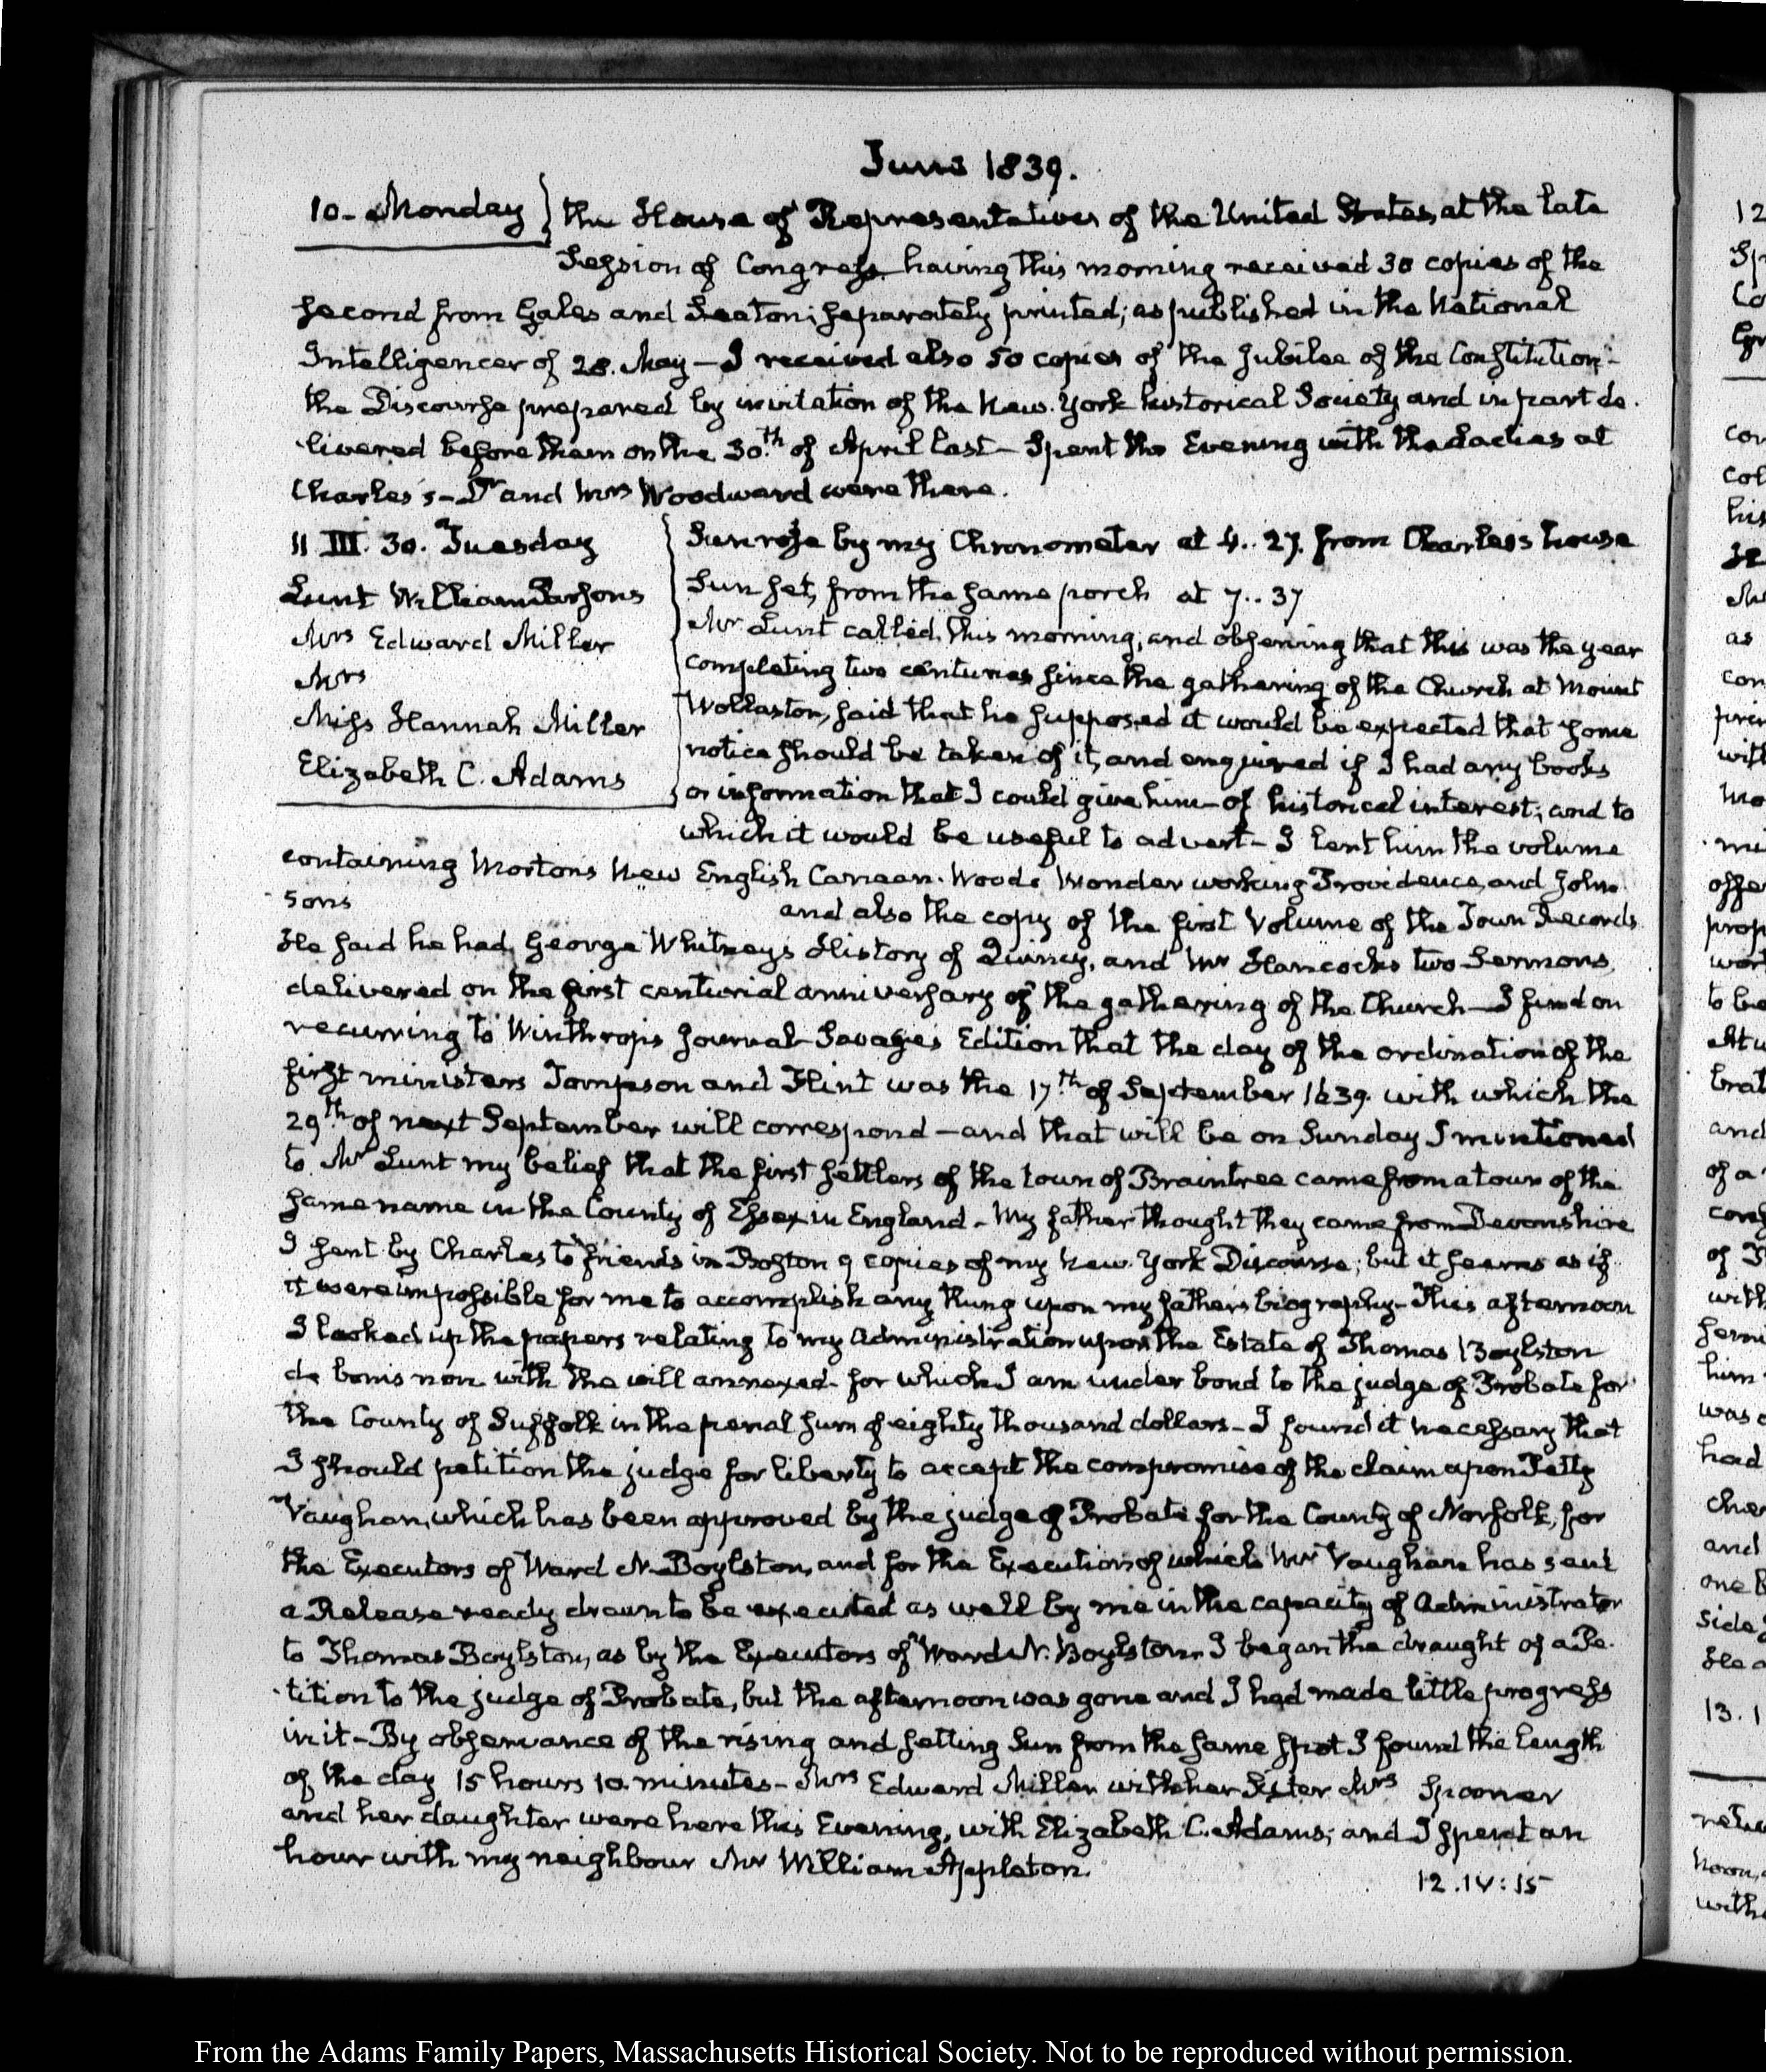 June 1839.
10. Monday } the House of Representatives of the United States, at the late
Session of Congress having this morning received 30 copies of the
second from Gales and Seaton; separately printed; as published in the National
Intelligencer of 28. May — I received also 50 copies of the Jubilee of the Constitution -
the Discourse prepared by invitation of the New. York historical Society and in part de.
livered before them on the 30.th of April last — Spent the Evening with the Ladies at
Charles's — Dr and Mrs Woodward were there.
11 III. 30. Tuesday
Lunt William Parsons
Mrs Edward Miller
Mrs
Miss Hannah Miller
Elizabeth C. Adams
Sun rose by my Chronometer at 4.. 27. from Charles's house
Sun set, from the same porch at 7.. 37
Mr Lunt called this morning, and observing that this was the year
completing two centuries since the gathering of the Church at Mount
Wollaston, said that he supposed it would be expected that some
notice should be taken of it, and enquired if I had any books
or information that I could give him — of historical interest; and to
which it would be useful to advert — I lent him the volume
containing Mortons New English Canaan. Woods Wonder working Providence, and John
sons and also the copy of the first Volume of the Town Records
He said he had George Whitney's History of Quincy, and Mr Hancocks two Sermons,
delivered on the first centurial anniversary of the gathering of the Church — I find on
recurring to Winthrop's Journal Savage's Edition that the day of the ordination of the
first ministers Tompson and Flint was the 17.th of September 1639. with which the
29.th of next September will correspond — and that will be on Sunday I mentioned
to Mr Lunt my belief that the first settlers of the town of Braintree came from a town of the
same name in the County of Essex in England. My father thought they came from Devonshire
I sent by Charles to friends in Boston 9 copies of my New. York Discourse; but it seems as if
it were impossible for me to accomplish any thing upon my fathers biography — This afternoon
I looked up the papers relating to my Administration upon the Estate of Thomas Boylston
de bonis non with the will annexed for which I am under bond to the judge of Probate for
the County of Suffolk in the penal sum of eighty thousand dollars — I found it necessary that
I should petition the judge for liberty to accept the compromise of the claim upon Petty
Vaughan, which has been approved by the judge of Probate for the County of Norfolk, for
the Executors of Ward N. Boylston, and for the Execution of which Mr Vaughan has sent
a Release ready drawn to be executed as well by me in the capacity of Administrator
to Thomas Boylston, as by the Executors of Ward N. Boylston. I began the draught of a Pe.
tition to the judge of Probate, but the afternoon was gone and I had made little progress
in it — By observance of the rising and setting Sun from the same spot I found the length
of the day 15 hours 10. minutes — Mrs Edward Miller with her Sister Mrs Spooner
and her daughter were here this Evening, with Elizabeth C. Adams; and I spent an
hour with my neighbour Mr William Appleton.
12. IV: 15
From the Adams Family Papers, Massachusetts Historical Society. Not to be reproduced without permission.